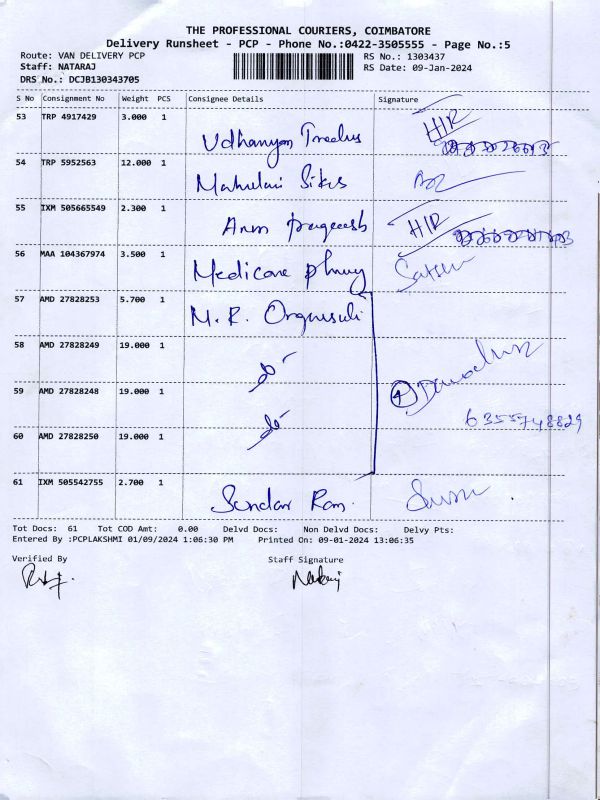 THE PROFESSIONAL COURIERS, COIMBATORE
Delivery Runsheet - PCP - Phone No.:0422-3505555 - Page No.:5
Route: VAN DELIVERY PCP RS No.: 1303437
Staff: NATARAJ RS Date: 09-Jan-2024
DRS No.: DCJB130343705
S No Consignment No Weight PCS Consignee Details Signature
53 TRP 4917429 3.000 1
HIR
54 TRP 5952563 12.000 1
55 IXM 505665549 2.300 1
HIR
56 MAA 104367974 3.500 1
Medicare
57 AMD 27828253 5.700 1
M. R.
58 AMD 27828249 19.000 1
do
59 AMD 27828248 19.000 1
4
do
60 AMD 27828250 19.000 1
6355748829
61 IXM 505542755 2.700 1
Sundar Ram.
Tot Docs: 61 Tot COD Amt: 0.00 Delvd Docs: Non Delvd Docs: Delvy Pts:
Entered By :PCPLAKSHMI 01/09/2024 1:06:30 PM Printed On: 09-01-2024 13:06:35
Verified By Staff Signature